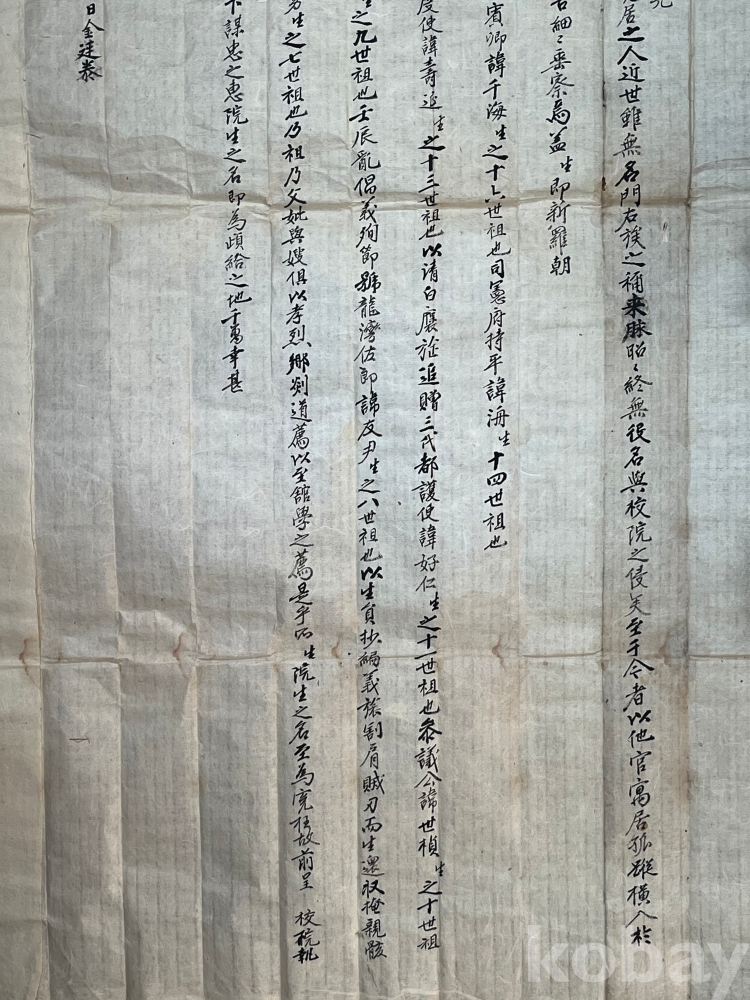 居之人近世雖無名門右族之稱來脉昭〻終無役名與校院之侵矣至于今者以他官寓居孤蹤橫入於
細〻垂察焉盖生即新羅朝
賓卿諱千海生之十六世祖也司憲府持平諱海生十四世祖也
度使諱壽延生之十三世祖也以清白廉旌追贈三代都護使諱好仁生之十一世祖也參議公諱世楨生之十世祖
之九世祖也壬辰亂倡義殉節號龍灣佐郎諱友尹生之八世祖也以生員抄編義旅割肩賊刃而生還収掩親骸
生之七世祖也乃祖乃父妣與嫂俱以孝烈鄉剡道薦以至舘學之薦是乎所生院生之名至爲寃枉故前呈校院執
下謀忠之惠院生之名即爲頉給之地千萬幸甚
日金廷泰
kobay